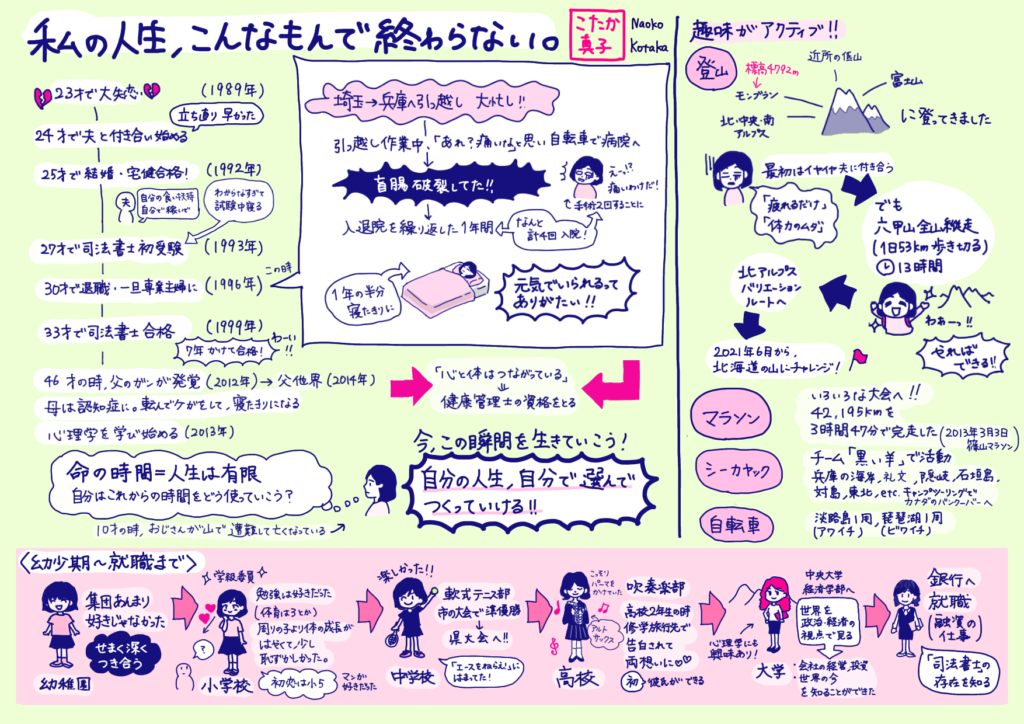 私の人生,こんなもんで終わらない。
こたか
真子
Naoko
Kotaka
23才で大失恋 (1989年)
立ち直り早かった
24才で夫と付き合い始める
25才で結婚・宅健合格! (1992年)
夫
自分の食い扶持
自分で稼いで
わからなすぎて
試験中寝る
27才で司法書士初受験 (1993年)
30才で退職・一旦専業主婦に (1996年)
この時
33才で司法書士合格 (1999年)
7年かけて合格!
わーい!!
46才の時,父のガンが発覚(2012年)→父他界(2014年)
母は認知症に。転んでケがをして,寝たきりになる
心理学を学び始める(2013年)
命の時間=人生は有限
自分はこれからの時間をどう使っていこう?
10才の時,おじさんが山で遭難して亡くなっている
埼玉→兵庫へ引っ越し 大忙し!!
引っ越し作業中,「あれ?痛いな」と思い自転車で病院へ
盲腸破裂してた!!
えっ!?
痛いわけだ!
手術2回することに
入退院を繰り返した1年間
なんと
計4回入院!
1年の半分
寝たきりに
元気でいられるって
ありがたい!!
「心と体はつながっている」
健康管理士の資格をとる
今,この瞬間を生きていこう!
自分の人生,自分で選んで
つくっていける!!
趣味がアクティブ!!
登山
標高4792m
モンブラン
近所の低山
富士山
北・中央・南
アルプス
に登ってきました
最初はイヤイヤ夫に付き合う
「疲れるだけ」
「体力のムダ」
でも
六甲山全山縦走
(1日53km歩き切る)
13時間
わあーっ!!
やれば
できる!!
北アルプス
バリエーション
ルートへ
2021年6月から,
北海道の山にチャレンジ!
マラソン
いろいろな大会へ!!
42,195kmを
3時間47分で完走した(2013年3月3日
篠山マラソン)
シーカヤック
チーム「黒い羊」で活動
兵庫の海岸,礼文,隠岐,石垣島,
対島,東北,etc. キャンプツーリングで
カナダのバンクーバーへ
自転車
淡路島1周,琵琶湖1周
(アワイチ) (ビワイチ)
<幼少期~就職まで>
集団あんまり
好きじゃなかった
せまく深く
つき合う
幼稚園
学級委員
勉強は好きだった
(体育は3とか)
周りの子より体の成長が
はやくて,少し
恥ずかしかった。
?
小学校
初恋は小5
マンガ
好きだった
楽しかった!!
軟式テニス部
市の大会で準優勝
県大会へ!!
「エースをねらえ!」に
はまってた!
中学校
こっそり
パーマを
かけていた
アルト
サックス
高校
吹奏楽部
高校2年生の時
修学旅行先で
告白されて
両想いに
初・彼氏ができる
心理学にも
興味あり!
大学
中央大学
経済学部へ
世界を
政治・経済の
視点で見る
・会社の経営,投資
・世界の今
を知ることができた
銀行へ
就職
(融資の
仕事)
「司法書士の
存在を知る